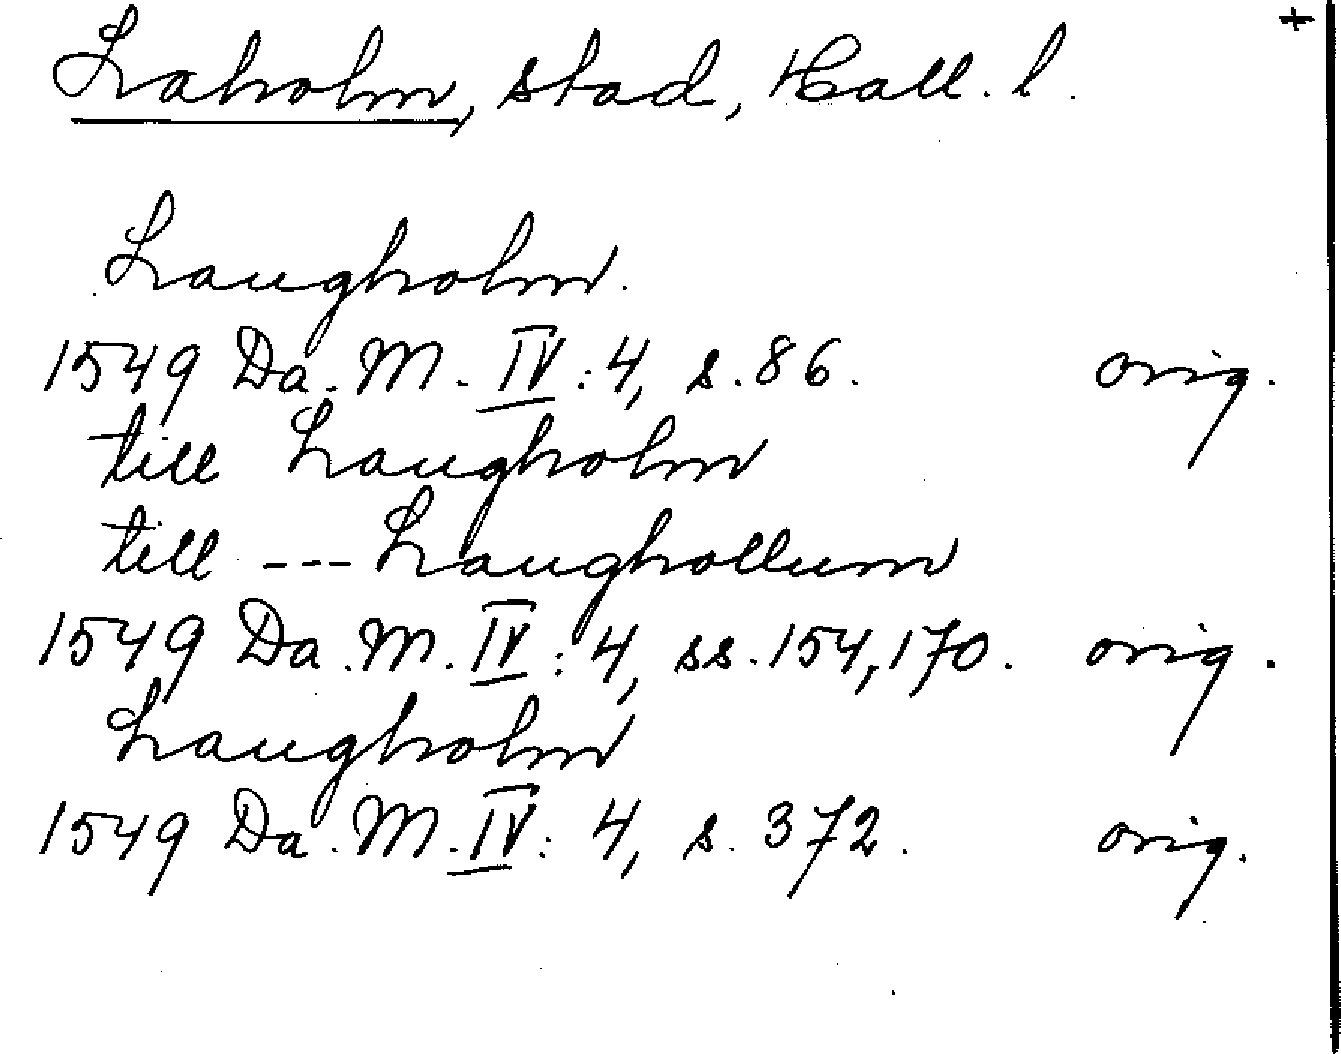 +
Laholm, stad, Hall. l.
Laugholm.
1549 Da. M. IV: 4, s. 86. orig.
till Laugholm
till --- Laughollum
1549 Da. M. IV: 4, ss. 154, 170. orig.
Laugholm
1549 Da. M. IV: 4, s. 372. orig.